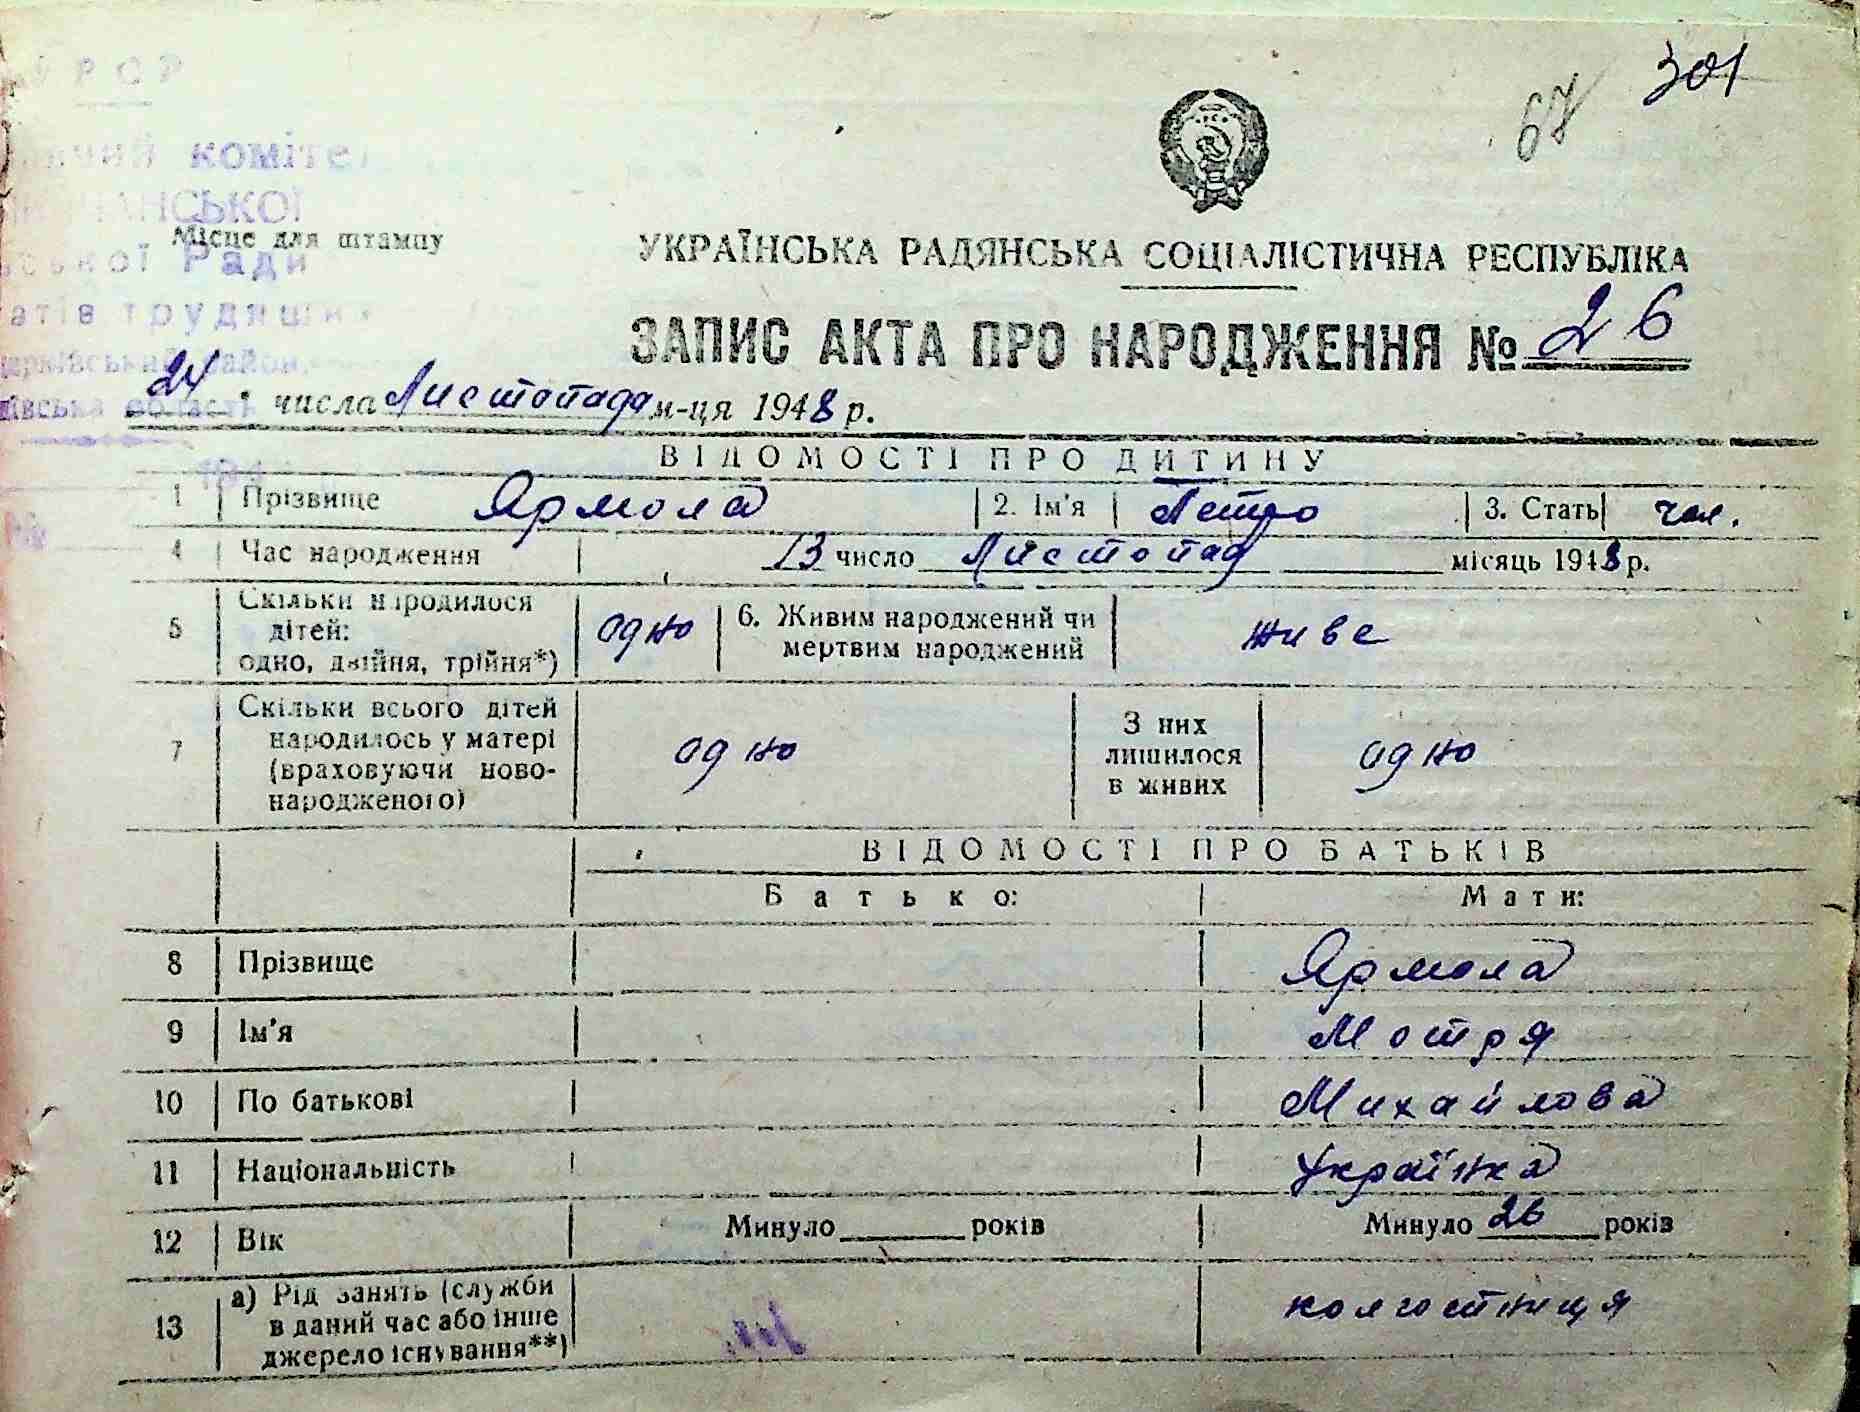 УРСР
301
67
комітет
Місце для штампу
Ради
УКРАЇНСЬКА РАДЯНСЬКА СОЦІАЛІСТИЧНА РЕСПУБЛІКА
трудящих
ЗАПИС АКТА ПРО НАРОДЖЕННЯ № 26
район
область
24 числа Листопада м-ця 1948 р.
ВІДОМОСТІ ПРО ДИТИНУ
1 Прізвище Ярмола 2. Ім'я Петро 3. Стать чол.
4 Час народження 13 число Листопад місяць 1948 р.
5 Скільки народилося дітей: одно, двійня, трійня*) одно 6. Живим народжений чи мертвим народжений живе
7 Скільки всього дітей народилось у матері (враховуючи новонародженого) одно З них лишилося в живих одно
ВІДОМОСТІ ПРО БАТЬКІВ
Батько: Мати:
8 Прізвище Ярмола
9 Ім'я Мотря
10 По батькові Михайлова
11 Національність Українка
12 Вік Минуло років Минуло 26 років
13 а) Рід занять (служби в даний час або інше джерело існування**) колгоспниця